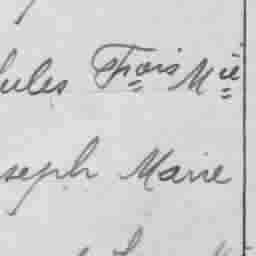 Jules Frois Mie
Joseph Marie